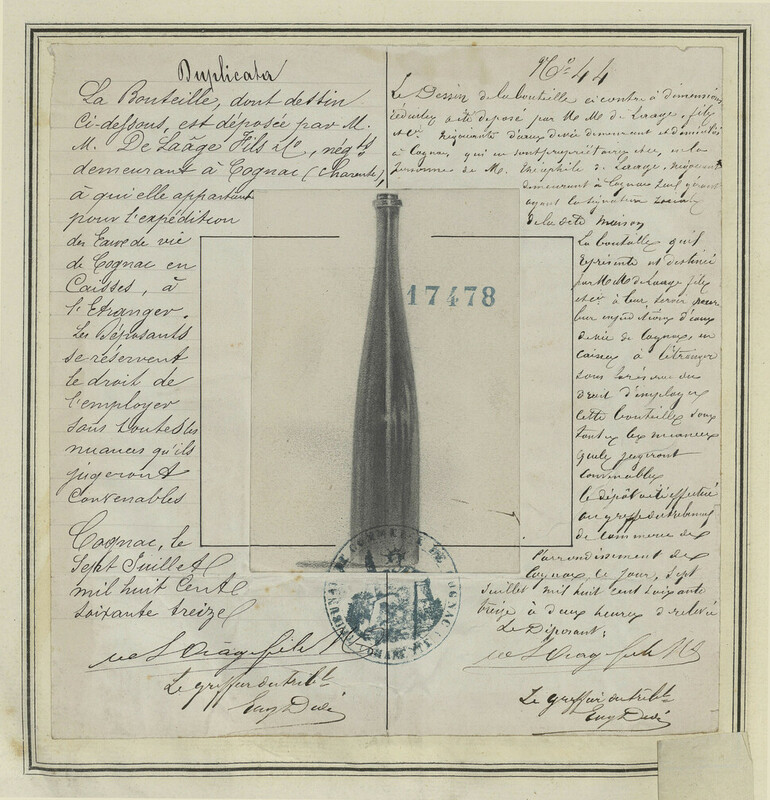 Duplicata
La Bouteille, dont dessin
Ci-dessous, est déposée par M.
M. De Laâge Fils & Co, négts
demeurant à Cognac (Charente),
à qui elle appartient
pour l'expédition
des Eaux de vie
de Cognac en
Caisses, à
l'Etranger.
Les Déposants
se réservent
le droit de
l'employer
sous toutes les
nuances qu'ils
jugeront
Convenables
Cognac, le
Sept Juillet
mil huit Cent
soixante treize
Le greffier du tribl
No 44
Le Dessin de la bouteille ci contre à dimensions
réduites a été déposé par MM de Laage fils
et Cie négociants d'eaux de vie demeurant et domiciliés
à Cognac, qui en sont propriétaires en la
personne de M. Théophile de Laage, négociant
demeurant à Cognac seul gérant
ayant la signature sociale
de la dite maison
La bouteille qu'il
représente est destinée
par MM de Laage fils
et Cie à leur servir pour
leur expéditions d'eaux
de vie de Cognac, en
caisses à l'étranger
sous la réserve du
droit d'employer
cette bouteille sous
toutes les nuances
qu'ils jugeront
convenables
le dépôt a été effectué
au greffe du tribunal
de commerce de
l'arrondissement de
Cognac, le jour, sept
juillet mil huit cent soixante
treize à deux heures de relevée
Le Déposant,
Le greffier du tribl
17478